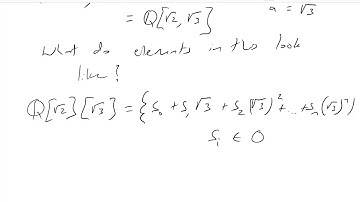 a = √3
= Q[√2, √3]
What do elements in this look
like?
Q[√2][√3] = {s₀ + s₁√3 + s₂(√3)² + ... + sₙ(√3)ⁿ}
sᵢ ∈ Q